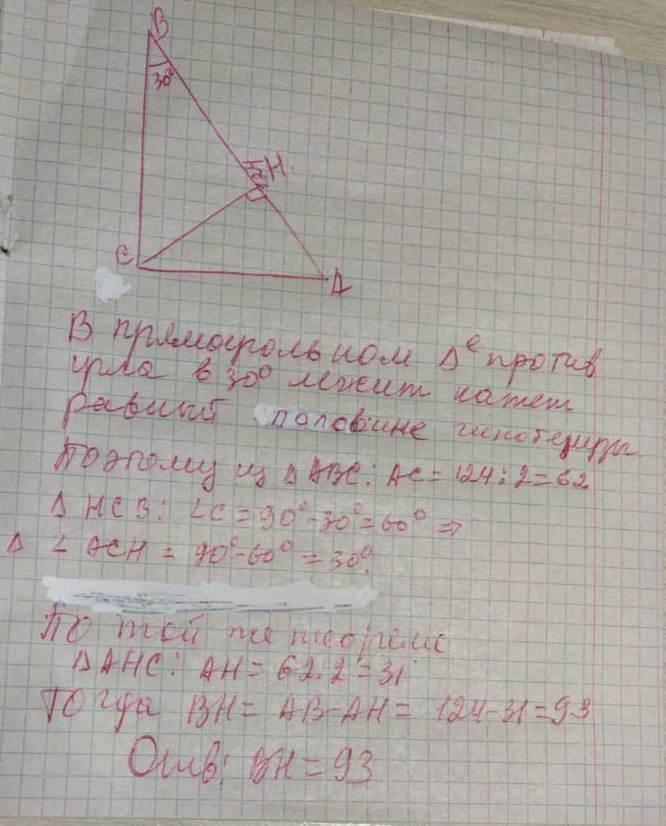 B
30°
H
C
A
В прямоугольном Δе против
угла в 30° лежит катет
равный половине гипотенузы
Поэтому из Δ ABC: AC = 124 : 2 = 62
Δ HCB: ∠C = 90° - 30° = 60° ⇒
Δ ∠ ACH = 90° - 60° = 30°.
По той же теореме
Δ AHC: AH = 62 : 2 = 31
Тогда BH = AB - AH = 124 - 31 = 93
Отв: BH = 93